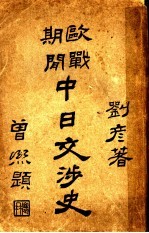 劉彦著
歐戰
期間
中日交涉史
曾熙題